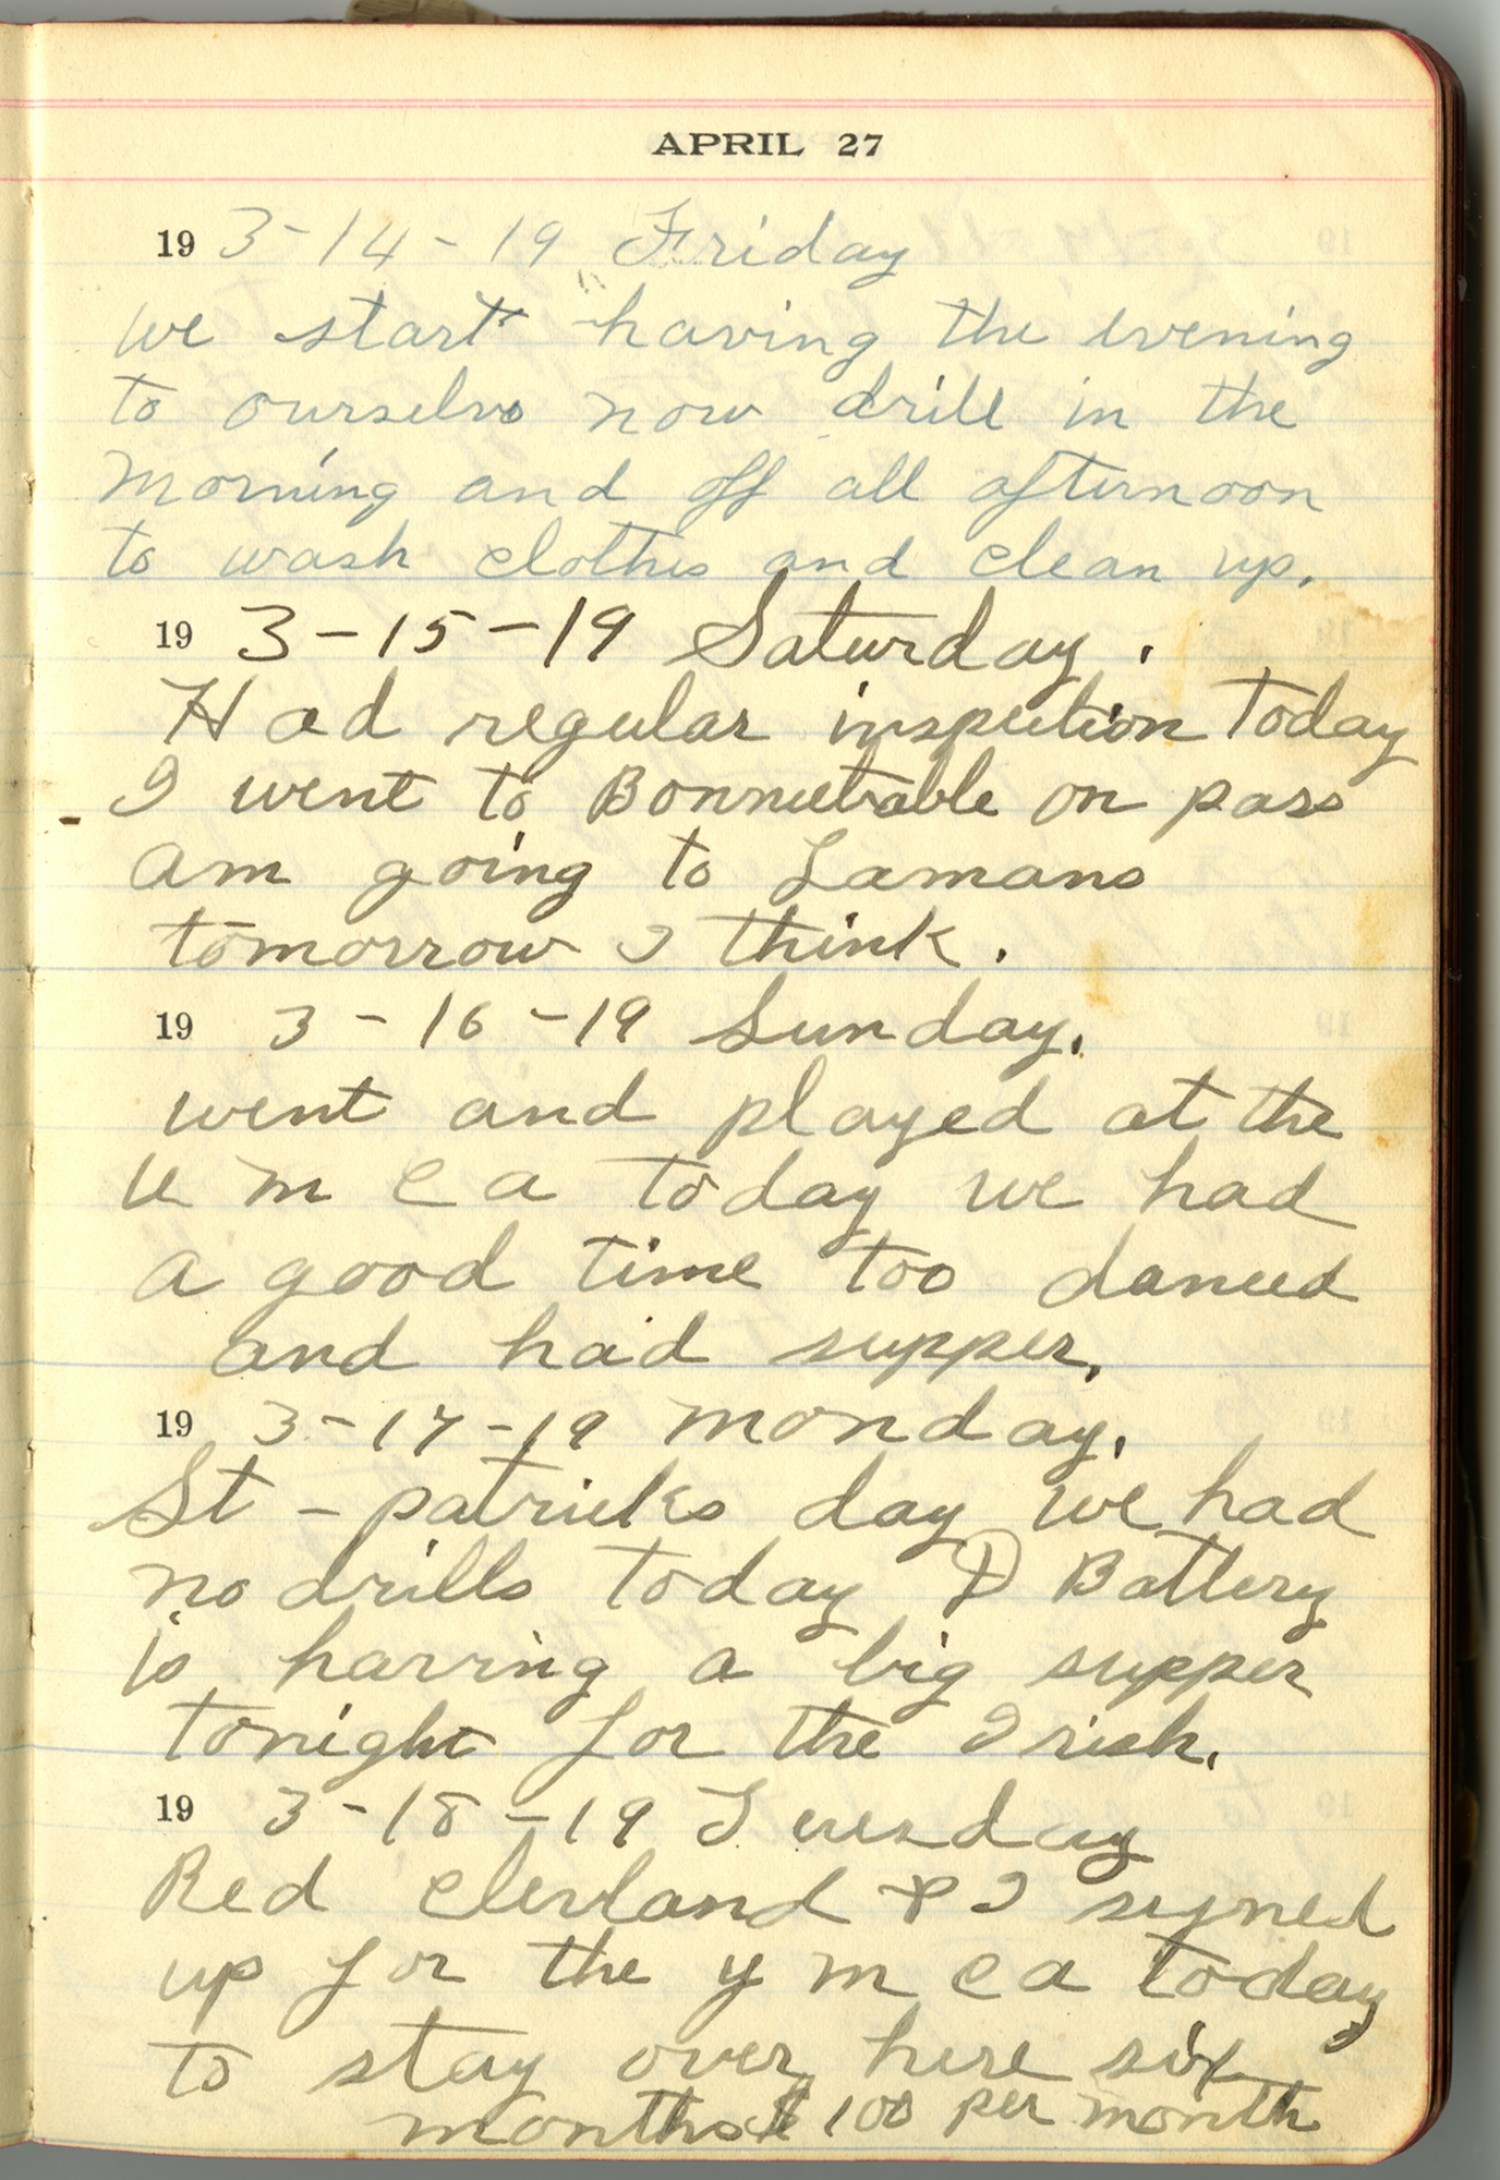 APRIL 27
19 3-14-19 Friday
we start having the evening
to ourselvs now drill in the
morning and off all afternoon
to wash clothes and clean up.
19 3-15-19 Saturday.
Had regular inspection Today
I went to Bonneetrable on pass
am going to Lamans
tomorrow I think.
19 3-16-19 Sunday.
went and played at the
Y m c a today we had
a good time too danced
and had supper.
19 3-17-19 monday.
St - patricks day we had
no drills today D Battery
is having a big supper
tonight for the Irish.
19 3-18-19 Tuesday
Red Clevland & I signed
up for the y m c a today
to stay over here six
months $100 per month